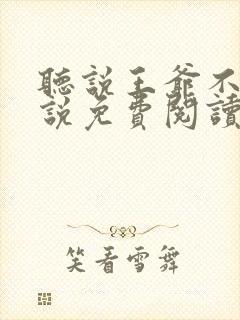 聽說王爺不
說免費閱讀
笑看雪舞